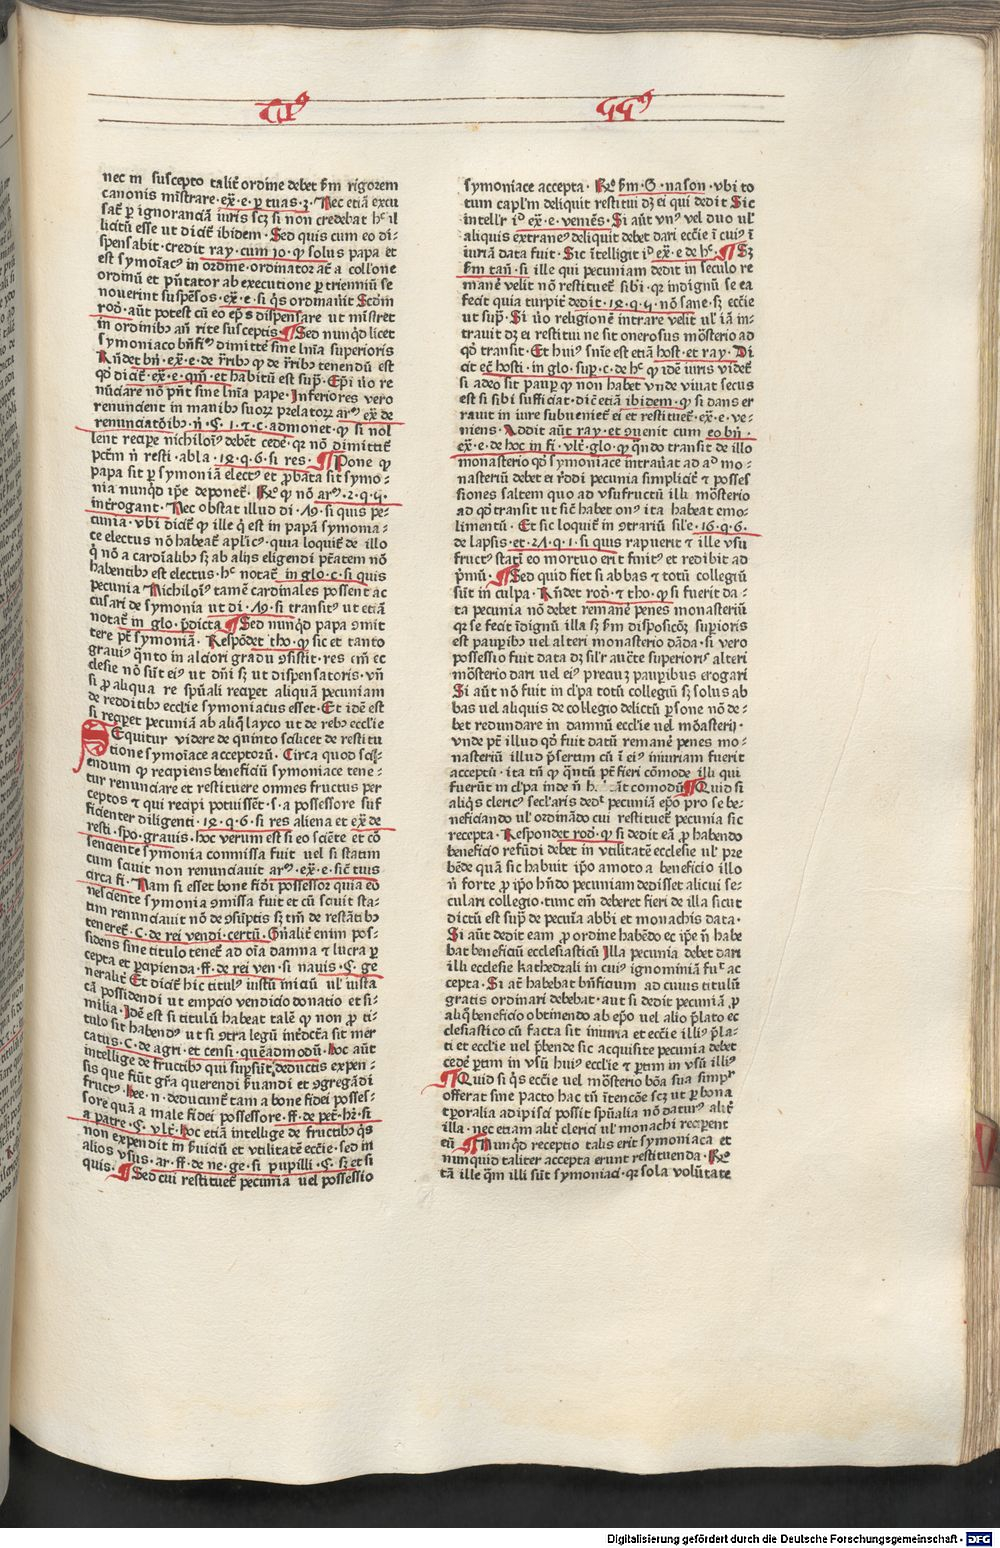 nec in suscepto talit̄ ordine debet ẜm rigorem
canonis mīstrare · ex̄ · e · ꝑ tuas · 3 · Nec etiā excu
sat̄ ꝑ ignoranciā iuris scꝫ si non credebat hͨ il
licitū esse ut dicit̄ ibidem · Sed quis cum eo di⸗
spensabit · credit ray · cum io · ꝙ solus papa et
est symoīacꝰ in ordine · ordinator at̄ a coll'one
ordinū et p̄ntator ab executione ꝑ trienniū se
nouerint suspēsos · ex̄ · e · si q̄s ordinauit Scd̄m
rod̄ · aūt potest cū eo ep̄s dispensare ut mīstret
in ordinibꝰ an̄ rite susceptis ¶ Sed nunqd̄ licet
symoniaco bn̄fiᵐ dimitte sine lnīa superioris
Rn̄det bn̄ · ex̄ · e · de r̄ribꝰ ꝙ de r̄ribꝰ tenendū est
qd̄ dicit̄ · ex̄ · e · qm̄ · et habitū est sup̄ · Ep̄i ūo re
nūciare nō pn̄t sine lnīa pape · Inferiores vero
renuncient in manibꝰ suoꝝ prelatoꝝ arᵒ ex̄ de
renunciatōibꝰ · n̄ · §· 1 · ⁊ · c · admonet · ꝙ si nol
lent reciꝑe nichiloīꝰ debēt cedē · qꝛ nō dimittit̄
pctm̄ n̄ resti · abla · 12 · q · 6 · si res · ¶ Pone ꝙ
papa sit ꝑ symoniā electꝰ et ꝓbata sit symo⸗
nia nunqd̄ ip̄e deponet̄ · Rͤ ꝙ nō arᵒ · 2 · q · 4 ·
interrogant · Nec obstat illud di · 19 · si quis pe⸗
cunia · vbi dicit̄ ꝙ ille q̄ est in papā symonia⸗
ce electus nō habeat̄ aplicꝰ · quia loquit̄ de illo
q̄ nō a cardīalibꝰ sꝫ ab alijs eligendi pt̄atem nō
habentibꝰ est electus · hͨ notat̄ in glo · c · si quis
pecunia Nichiloīꝰ tamē cardinales possent ac
cusari de symonia ut di · 19 · si transitꝰ ut etiā
notat̄ in glo · p̄dicta ¶ Sed nunqd̄ papa ꝯmit
tere pt̄ symoniā · Respōdet tho · ꝙ sic et tanto
grauiꝰ q̄nto in alciori gradu ꝯsistit · res em̄ ec
clesie nō sūt eiꝰ ut dn̄i sꝫ ut dispensatoris · vn̄
si ꝓ aliqua re spūali reciꝑet aliquā pecuniam
de redditibꝰ eccl'ie symoniacus esset · Et idē est
si reciꝑet pecuniā ab aliq̄ layco ut de rebꝰ eccl'ie
Sequitur videre de quinto scilicet de restitu
tione symoīace acceptorū · Circa quod sci⸗
endum ꝙ recipiens beneficiū symoniace tene⸗
tur renunciare et restituere omnes fructus per
ceptos ⁊ qui recipi potuissēt · s · a possessore suf
ficienter diligenti · 12 · q · 6 · si res aliena et ex̄ de
resti · spo · grauis · hoc verum est si eo sciēte et cō
senciente symonia cōmissa fuit uel si statim
cum sciuit non renunciauit arᵒ · ex̄ · e · sicͭ tuis
circa fi · Nam si esset bone fidei possessor quia eo
nesciente symonia ꝯmissa fuit et cū sciuit sta⸗
tim renunciauit nō de ꝯsūptis sꝫ tm̄ de restātibꝰ
teneret̄ · C · de rei vendi · certū · Gn̄alit̄ enim pos⸗
sidens sine titulo tenet̄ ad oīa damna ⁊ lucra ꝑ
cepta et ꝑcipienda · ff · de rei ven · si nauis · §· ge
neralit̄ Et dicit̄ hic titulꝰ iustū iniciū ul' iusta
cā possidendi ut empcio vendicio donatio et si⸗
milia · Idē est si titulū habeat talē ꝙ non ꝓ ti⸗
tulo sit habendꝰ ut si ꝯtra legū int̄dcta sit mer
catus · C · de agri · et censi · quēadmodū · hoc aūt
intellige de fructibꝰ qui suꝑsūt deductis expen⸗
sis que fiūt gr̄a querendi ẜuandi et ꝯgregādi
fructꝰ · hee · n · deducunt̄ tam a bone fidei posses⸗
sore quā a male fidei possessore · ff · de pet̄ · hꝫ · si
a patre · §· vlt̄ · hoc etiā intellige de fructibꝰ q̄s
non expendit in ẜuiciū et vtilitatē eccīe · sed in
alios vsus · ar · ff · de ne · ge · si pupilli · §· sꝫ et si
quis · ¶ Sed cui restituet̄ pecunia uel possessio
symoniace accepta · Rͤ ẜm · G · nason · vbi to
tum capl'm deliquit restitui dꝫ ei qui dedit Sic
intell'r iᵈ ex̄ · e · veniēs · Si aūt vnꝰ vel duo ul'
aliquis extraneꝰ deliquit debet dari eccīe ī cuiꝰ ī
iuriā data fuit · Sic ītelligit iᵈ ex̄ · e · de hͨ · ¶ Sꝫ
ẜm tan̄ · si ille qui pecuniam dedit in seculo re
manē velit nō restituet̄ sibi · qꝛ indignū se ea
fecit quia turpit̄ dedit · 12 · q · 4 · nō sane · sꝫ eccīe
ut sup̄ · Si ūo religionē intrare velit ul' iā in⸗
trauit dꝫ ei restitui ne sit onerosus mōsterio ad
qd̄ transit · Et huiꝰ snīe est etiā host · et ray · Di
cit ec̄ hosti · in glo · sup̄ · c · de hͨ ꝙ idē iuris videt̄
si adeo sit pauꝑ ꝙ non habet vnde viuat secus
est si sibi sufficiat · dic̄ etiā ibidem · ꝙ si dans er
rauit in iure subueniet̄ ei et restituet̄ · ex̄ · e · ve⸗
niens · Addit aūt ray · et ꝯuenit cum eo bn̄ ·
ex̄ · e · de hoc in fi · vlt̄ · glo · ꝙ qn̄do transit de illo
monasterio qd̄ symoniace intrauāt ad aᵈ mo⸗
nasteriū debet ei r̄ddi pecunia simplicit̄ ⁊ posses
siones saltem quo ad vsufructū illi mōsterio
ad qd̄ transit ut sic̄ habet onꝰ ita habeat emo⸗
limentū · Et sic loquit̄ in ꝯtrariū sil'e · 16 · q · 6 ·
de lapsis · et · 21 · q · 1 · si quis rapuerit ⁊ ille vsu
fructꝰ statī eo mortuo erit finitꝰ et redibit ad
p̄mū · ¶ Sed quid fiet si abbas ⁊ totū collegiū
sūt in culpa · Rn̄det rod̄ · ⁊ tho · ꝙ si fuerit da⸗
ta pecunia nō debet remanē penes monasteriū
qꝛ se fecit īdignū illa sꝫ ẜm disposicōꝫ suꝑioris
est pauꝑibꝰ vel alteri monasterio dāda · si vero
possessio fuit data dꝫ sil'r auct̄e superiorꝭ alteri
mōsterio dari vel eiꝰ preciuꝫ pauꝑibus erogari
Si aūt nō fuit in cl'pa totū collegiū sꝫ solus ab
bas uel aliquis de collegio delictū ꝑsone nō de⸗
bet redundare in damnū eccl'ie vel mōasterij ·
vnde pt̄ illud qd̄ fuit datū remanē penes mo⸗
nasteriū illud p̄sertum cū ī eiꝰ iniuriam fuerit
acceptū · ita tn̄ ꝙ q̄ntū pt̄ fieri cōmode illi qui
fuerūt in cl'pa inde n̄ h · āt comodū ¶ Quid si
aliq̄s clericꝰ secl'aris ded̄ pecuniā ep̄o pro se be⸗
neficiando ul' ordinādo cui restituet̄ pecunia sic
recepta · Respondet rod̄ · ꝙ si dedit eā ꝓ habendo
beneficio refūdi debet in vtilitatē ecclesie ul' pre
bēde quā sic habuit ip̄o amoto a beneficio illo
n̄ forte ꝓ ip̄o hn̄do pecuniam dedisset alicui se⸗
culari collegio · tunc em̄ deberet fieri de illa sicut
dictū est sup̄ de pecuīa abbi et monachis data ·
Si aūt dedit eam ꝓ ordine habēdo ec ip̄e n̄ habe
bat beneficiū ecclesiasticū Illa pecunia debet dari
illi ecclesie kathedrali in cuiꝰ ignominiā fuͭ ac
cepta · Si at̄ habebat bn̄ficium ad cuius titulū
gratis ordinari debebat · aut si dedit pecuniā ꝓ
aliq̄ beneficio obtinendo ab ep̄o vel alio p̄lato ec
clesiastico cū facta sit iniuria et eccīe illiꝰ p̄la⸗
ti et eccl'ie vel p̄bende sic acquisite pecunia debet
cedē ꝑtim in vsū huiꝰ eccl'ie ⁊ ꝑtim in vsū illiꝰ
¶ Quid si q̄s eccīe uel mōsterio bōa sua simplʳ
offerat sine pacto hac tn̄ ītencōe scꝫ ut ꝑ bona
tꝑoralia adipisci possit spūalia nō daturꝰ alit̄
illa · nec etiam alit̄ clerici ul' monachi reciꝑent
eū ¶ Nunqd̄ receptio talis erit symoniaca et
nunquid taliter accepta erunt restituenda · Rͤ
tā ille q̄m illi sūt symoniaci · qꝛ sola volūtate
Digitalisierung gefördert durch die Deutsche Forschungsgemeinschaft · DFG